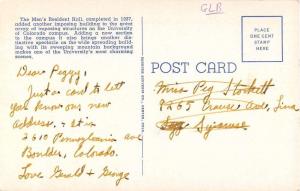 GLB
The Men's Resident Hall, completed in 1937,
added another imposing building to the great
array of imposing structures on the University
of Colorado campus. Adding a new section
to the campus it also brings another dis-
tinctive spectacle on the wide spreading build-
ing with its sweeping mountain background
makes one of the University's most charming
scenes.
PLACE
ONE CENT
STAMP
HERE
POST CARD
Dear Peggy,
Just a card to let
you know our new
address. It is
2610 Pennsylvania Ave
Boulder, Colorado.
Love Gerald & George
Miss Peg